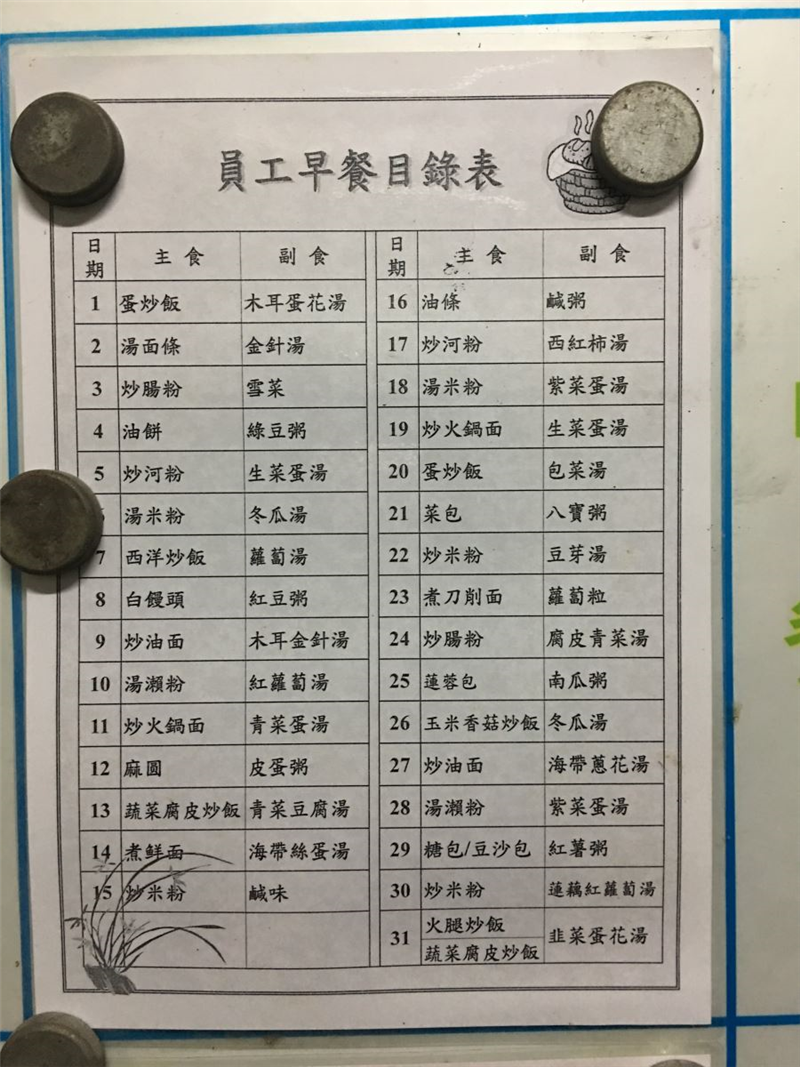 員工早餐目錄表
日期 主食 副食
1 蛋炒飯 木耳蛋花湯
2 湯面條 金針湯
3 炒腸粉 雪菜
4 油餅 綠豆粥
5 炒河粉 生菜蛋湯
湯米粉 冬瓜湯
7 西洋炒飯 蘿蔔湯
8 白饅頭 紅豆粥
9 炒油面 木耳金針湯
10 湯瀨粉 紅蘿蔔湯
11 炒火鍋面 青菜蛋湯
12 麻圓 皮蛋粥
13 蔬菜腐皮炒飯 青菜豆腐湯
14 煮鮮面 海帶絲蛋湯
15 炒米粉 鹹味
日期 主食 副食
16 油條 鹹粥
17 炒河粉 西紅柿湯
18 湯米粉 紫菜蛋湯
19 炒火鍋面 生菜蛋湯
20 蛋炒飯 包菜湯
21 菜包 八寶粥
22 炒米粉 豆芽湯
23 煮刀削面 蘿蔔粒
24 炒腸粉 腐皮青菜湯
25 蓮蓉包 南瓜粥
26 玉米香菇炒飯 冬瓜湯
27 炒油面 海帶蔥花湯
28 湯瀨粉 紫菜蛋湯
29 糖包/豆沙包 紅薯粥
30 炒米粉 蓮藕紅蘿蔔湯
31 火腿炒飯 韭菜蛋花湯
蔬菜腐皮炒飯